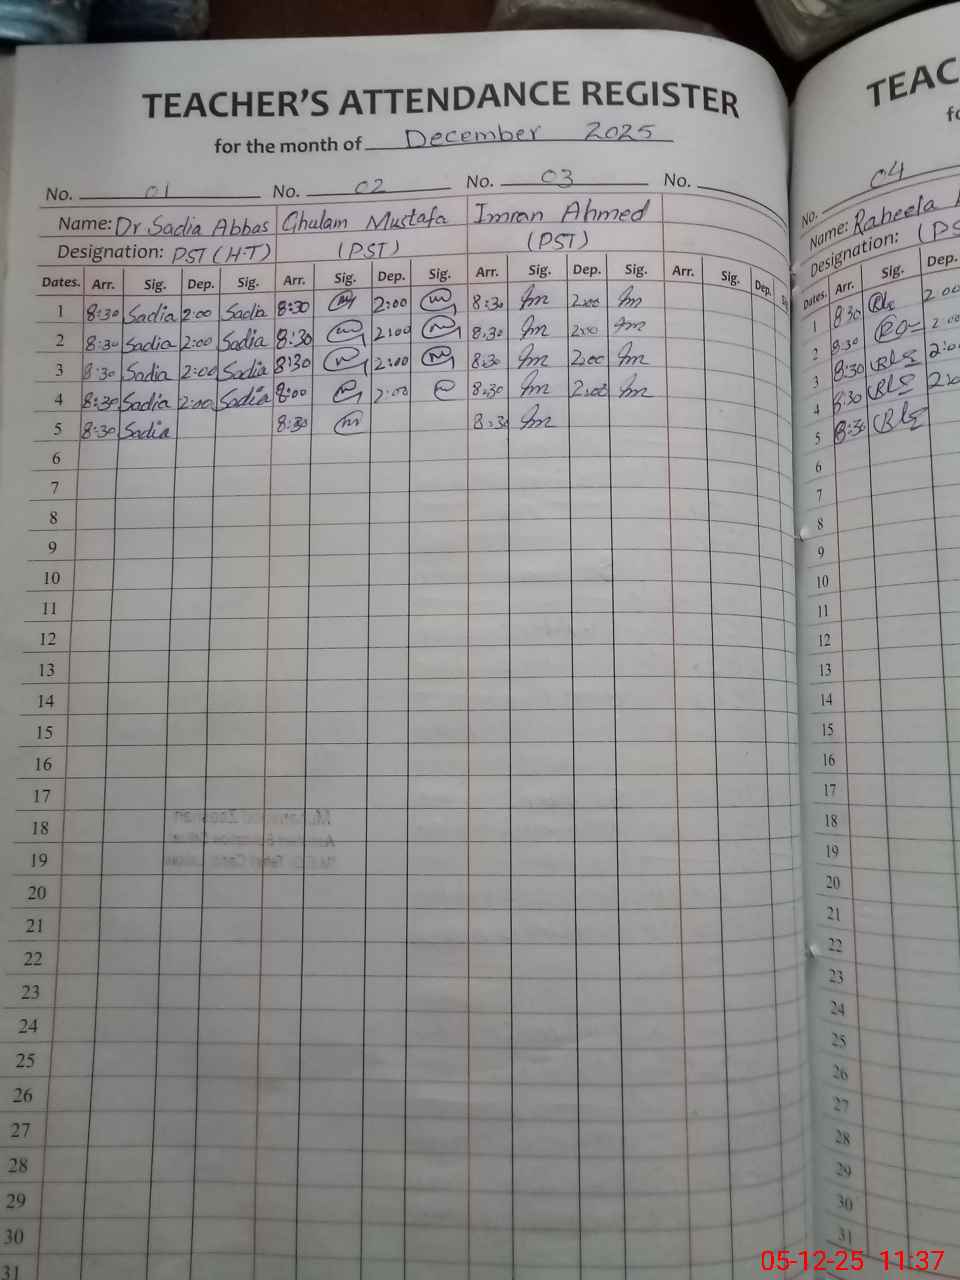 TEACHER'S ATTENDANCE REGISTER
for the month of December 2025
No. 01 No. 02 No. 03 No.
Name: Dr Sadia Abbas Ghulam Mustafa Imran Ahmed
Designation: PST (H-T) (PST) (PST)
Dates. Arr. Sig. Dep. Sig. Arr. Sig. Dep. Sig. Arr. Sig. Dep. Sig. Arr. Sig. Dep.
1 8:30 Sadia 2:00 Sadia 8:30 2:00 8:30 2:00
2 8:30 Sadia 2:00 Sadia 8:30 2:00 8:30 2:00
3 8:30 Sadia 2:00 Sadia 8:30 2:00 8:30 2:00
4 8:30 Sadia 2:00 Sadia 8:00 2:00 8:30 2:00
5 8:30 Sadia 8:30 8:30
6
7
8
9
10
11
12
13
14
15
16
17
18
19
20
21
22
23
24
25
26
27
28
29
30
31
TEAC
fo
No. 04
Name: Raheela
Designation: (PS
Dates. Arr. Sig. Dep.
1 8:30 2:00
2 8:30 2:00
3 8:30 2:0
4 8:30
5 8:30
6
7
8
9
10
11
12
13
14
15
16
17
18
19
20
21
22
23
24
25
26
27
28
29
30
31
05-12-25 11:37